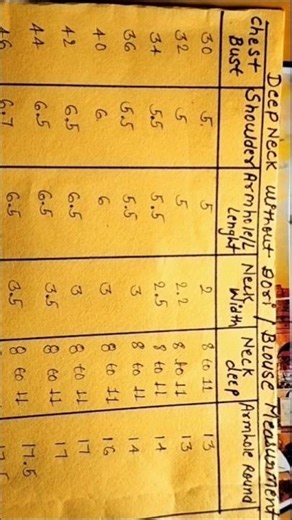 Deep Neck without Dori / Blouse Measurment
Chest Bust Shoulder Armhole/L Lenght Neck Width Neck deep Armhole Round
30 5. 5 2 8 to 11 13
32 5 5 2.2 8 to 11 13
34 5.5 5.5 2.5 8 to 11 14
36 5.5 5.5 3 8 to 11 14
40 6 6 3 8 to 11 16
42 6.5 6.5 3 8 to 11 17
44 6.5 6.5 3.5 8 to 11 17
46 6.7 6.5 3.5 8 to 11 17.5